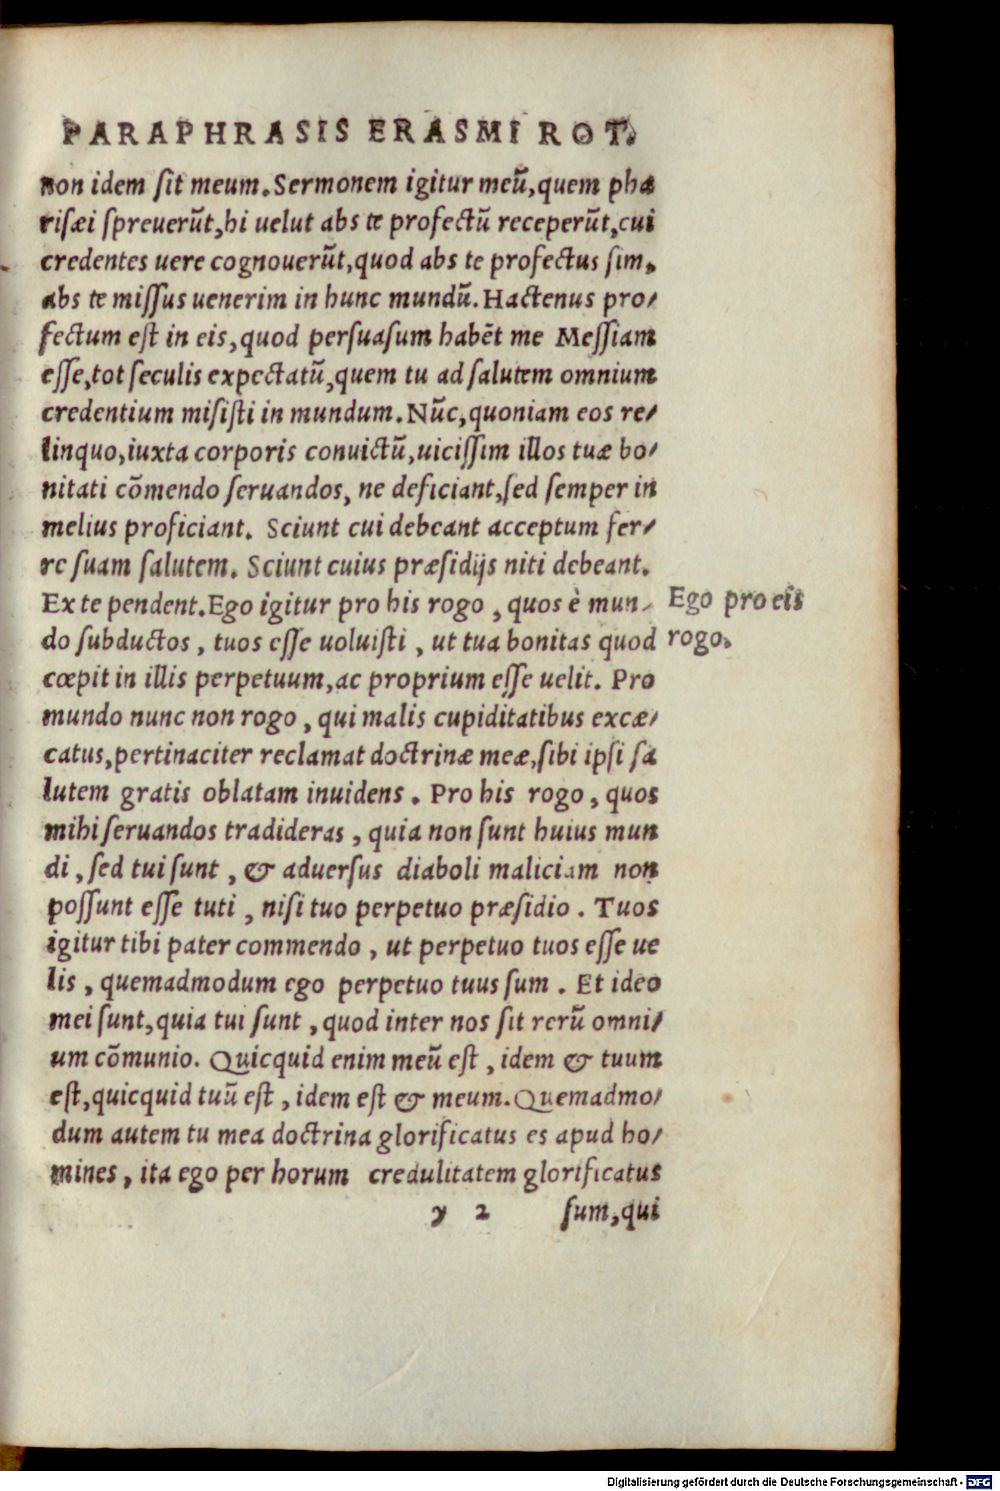 PARAPHRASIS ERASMI ROT.
non idem sit meum. Sermonem igitur meũ, quem pha
risæi spreuerũt, hi uelut abs te profectũ receperũt, cui
credentes uere cognouerũt, quod abs te profectus sim,
abs te missus uenerim in hunc mundũ. Hactenus pro/
fectum est in eis, quod persuasum habẽt me Messiam
esse, tot seculis expectatũ, quem tu ad salutem omnium
credentium misisti in mundum. Nũc, quoniam eos re/
linquo, iuxta corporis conuictũ, uicissim illos tuæ bo/
nitati cõmendo seruandos, ne deficiant, sed semper in
melius proficiant. Sciunt cui debeant acceptum fer/
re suam salutem. Sciunt cuius præsidijs niti debeant.
Ex te pendent. Ego igitur pro his rogo, quos è mun/
do subductos, tuos esse uoluisti, ut tua bonitas quod
cœpit in illis perpetuum, ac proprium esse uelit. Pro
mundo nunc non rogo, qui malis cupiditatibus excæ/
catus, pertinaciter reclamat doctrinæ meæ, sibi ipsi sa
lutem gratis oblatam inuidens. Pro his rogo, quos
mihi seruandos tradideras, quia non sunt huius mun
di, sed tui sunt, & aduersus diaboli maliciam non
possunt esse tuti, nisi tuo perpetuo præsidio. Tuos
igitur tibi pater commendo, ut perpetuo tuos esse ue
lis, quemadmodum ego perpetuo tuus sum. Et ideo
mei sunt, quia tui sunt, quod inter nos sit rerũ omni/
um cõmunio. Quicquid enim meũ est, idem & tuum
est, quicquid tuũ est, idem est & meum. Quemadmo/
dum autem tu mea doctrina glorificatus es apud ho/
mines, ita ego per horum credulitatem glorificatus
y 2 sum, qui
Ego pro eis
rogo.
Digitalisierung gefördert durch die Deutsche Forschungsgemeinschaft - DFG